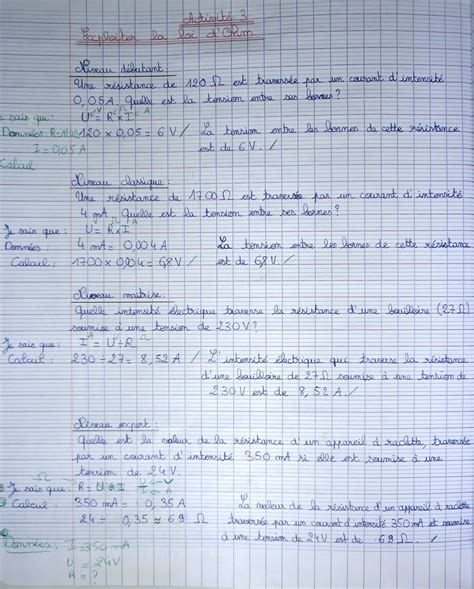 Activité 3
Exploiter la loi d'Ohm
Niveau débutant :
Une résistance de 120 Ω est traversée par un courant d'intensité
0,05 A. Quelle est la tension entre ses bornes ?
sais que : U = R × I
Données : 120 × 0,05 = 6 V / La tension entre les bornes de cette résistance
I = 0,05 A est de 6 V. /
Calcul
Niveau classique :
Une résistance de 1700 Ω est traversée par un courant d'intensité
4 mA. Quelle est la tension entre ses bornes ?
Je sais que : U = R × I
Données : 4 mA = 0,004 A La tension entre les bornes de cette résistance
Calcul : 1700 × 0,004 = 6,8 V / est de 6,8 V. /
Niveau maitrise :
Quelle intensité électrique traverse la résistance d'une bouilloire (27 Ω)
soumise à une tension de 230 V ?
Je sais que : I = U ÷ R
Calcul : 230 ÷ 27 = 8,52 A / L'intensité électrique qui traverse la résistance
d'une bouilloire de 27 Ω soumise à une tension de
230 V est de 8,52 A. /
Niveau expert :
Quelle est la valeur de la résistance d'un appareil à raclette, traversée
par un courant d'intensité 350 mA si elle est soumise à une
tension de 24 V.
Je sais que : R = U I
Calcul 350 mA = 0,35 A La valeur de la résistance d'un appareil à raclette
24 ÷ 0,35 ≈ 69 Ω traversée par un courant d'intensité 350 mA et soumise
Données : I = 350 mA à une tension de 24 V est de 69 Ω. /
U = 24 V
R = ?